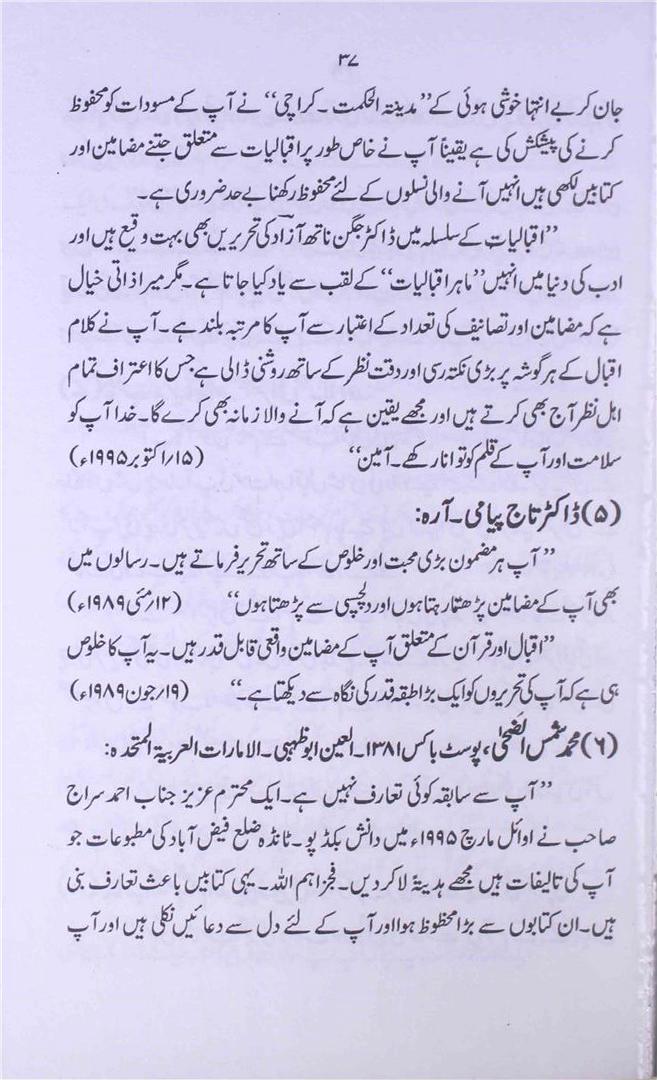 ۳۷
جان کر بے انتہا خوشی ہوئی کے ”مدینۃ الحکمت۔ کراچی“ نے آپ کے مسودات کو محفوظ
کرنے کی پیشکش کی ہے یقیناً آپ نے خاص طور پر اقبالیات سے متعلق جتنے مضامین اور
کتابیں لکھی ہیں انہیں آنے والی نسلوں کے لئے محفوظ رکھنا بے حد ضروری ہے۔
”اقبالیات کے سلسلہ میں ڈاکٹر جگن ناتھ آزاد کی تحریریں بھی بہت وقیع ہیں اور
ادب کی دنیا میں انہیں ”ماہر اقبالیات“ کے لقب سے یاد کیا جاتا ہے۔ مگر میرا ذاتی خیال
ہے کہ مضامین اور تصانیف کی تعداد کے اعتبار سے آپ کا مرتبہ بلند ہے۔ آپ نے کلام
اقبال کے ہر گوشہ پر بڑی نکتہ رسی اور دقت نظر کے ساتھ روشنی ڈالی ہے جس کا اعتراف تمام
اہل نظر آج بھی کرتے ہیں اور مجھے یقین ہے کہ آنے والا زمانہ بھی کرے گا۔ خدا آپ کو
سلامت اور آپ کے قلم کو توانا رکھے۔ آمین“ (۱۵/اکتوبر ۱۹۹۵ء)
(۵) ڈاکٹر تاج پیامی۔ آرہ:
”آپ ہر مضمون بڑی محبت اور خلوص کے ساتھ تحریر فرماتے ہیں۔ رسالوں میں
بھی آپ کے مضامین پڑھتا رہتا ہوں اور دلچسپی سے پڑھتا ہوں“ (۱۲/مئی ۱۹۸۹ء)
”اقبال اور قرآن کے متعلق آپ کے مضامین واقعی قابل قدر ہیں۔ یہ آپ کا خلوص
ہی ہے کہ آپ کی تحریروں کو ایک بڑا طبقہ قدر کی نگاہ سے دیکھتا ہے“ (۱۹/جون ۱۹۸۹ء)
(۶) محمد شمس الضحیٰ، پوسٹ باکس ۱۳۸۱۔ العین ابوظہبی۔ الامارات العربیۃ المتحدہ:
”آپ سے سابقہ کوئی تعارف نہیں ہے۔ ایک محترم عزیز جناب احمد سراج
صاحب نے اوائل مارچ ۱۹۹۵ء میں دانش بکڈپو۔ ٹانڈہ ضلع فیض آباد کی مطبوعات جو
آپ کی تالیفات ہیں مجھے ہدیۃً لا کر دیں۔ فجزاہم اللہ۔ یہی کتابیں باعث تعارف بنی
ہیں۔ ان کتابوں سے بڑا محظوظ ہوا اور آپ کے لئے دل سے دعائیں نکلی ہیں اور آپ